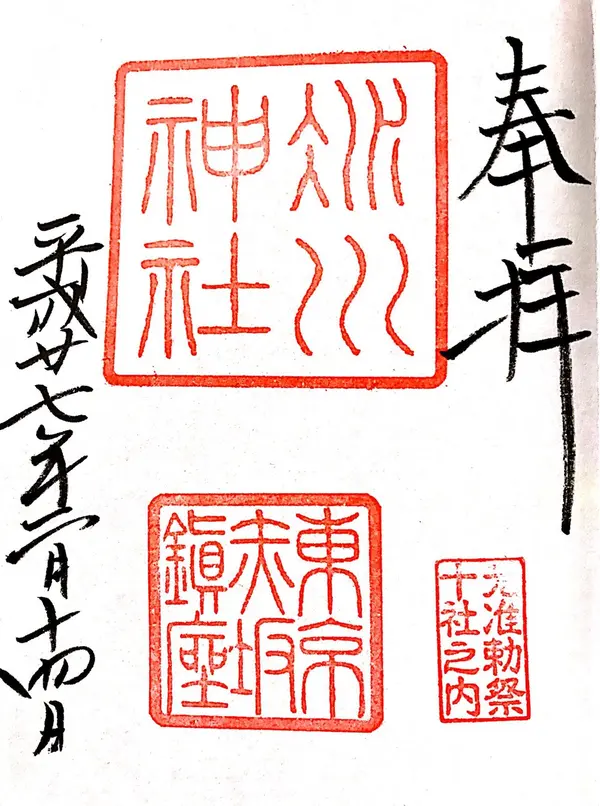 奉拝
氷川
神社
東京
赤坂
鎭座
元准勅祭
十社之内
平成廿七年二月十四日